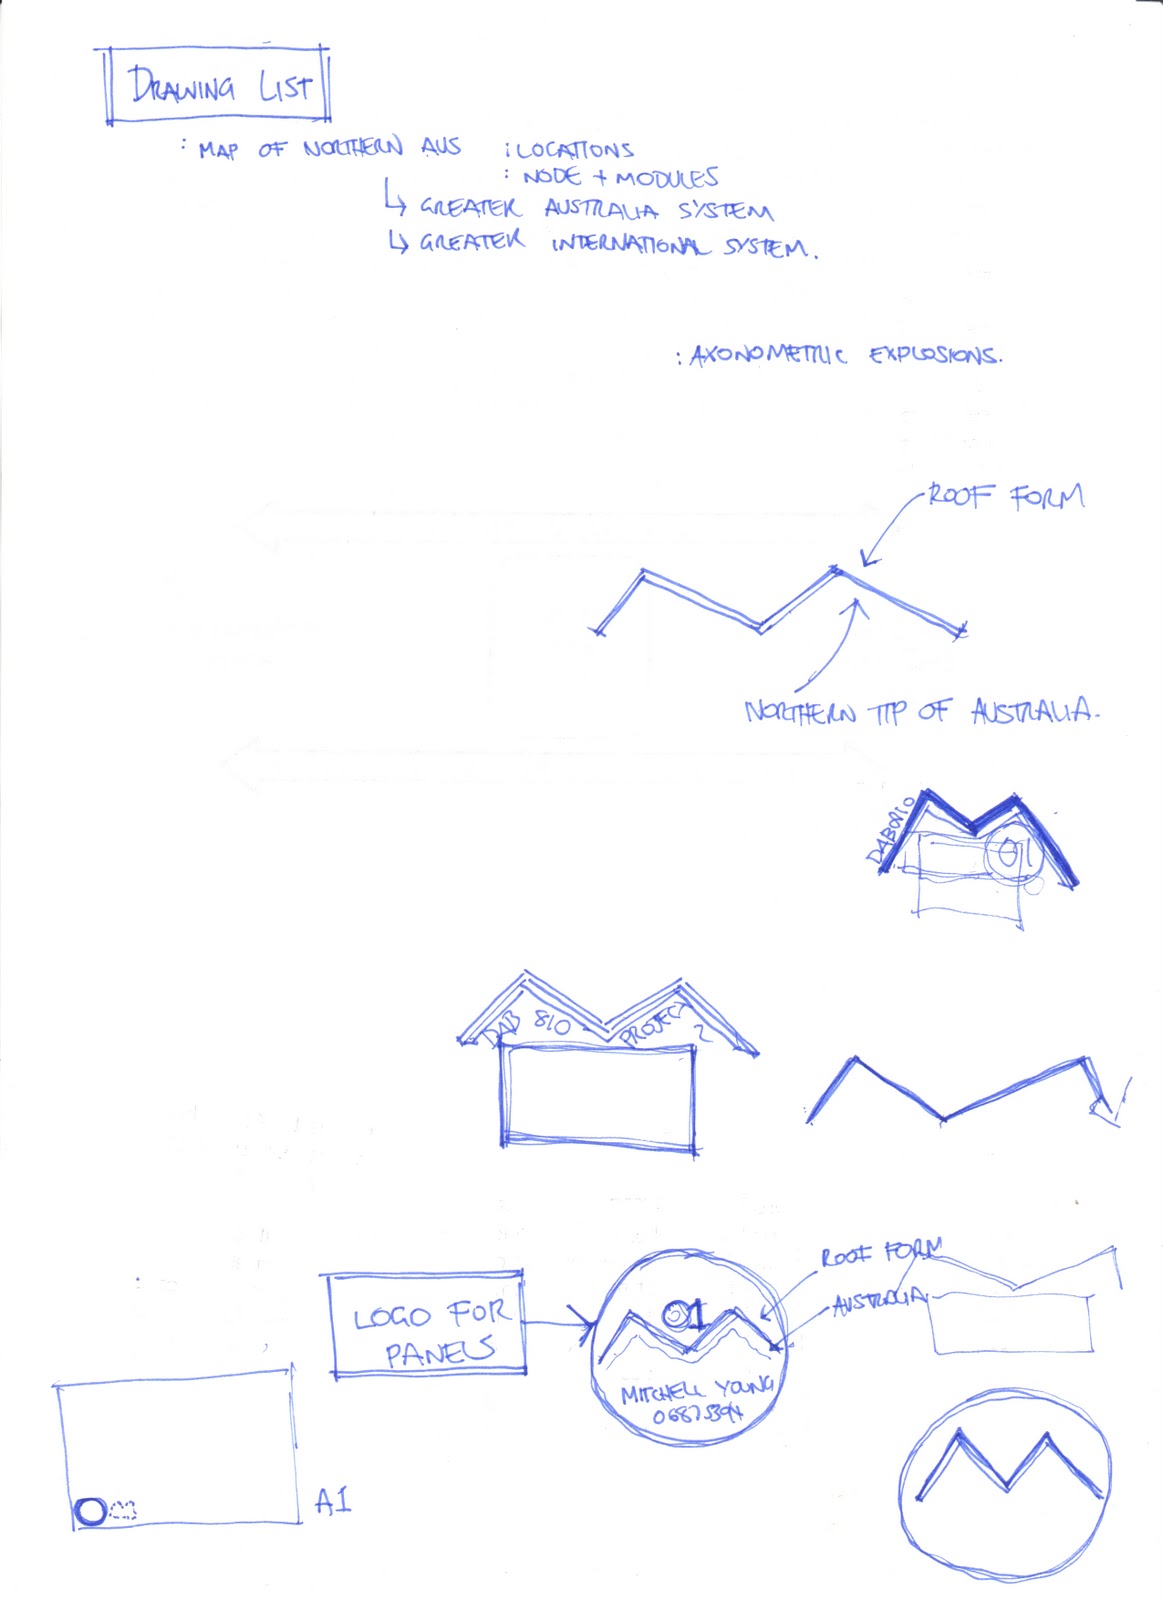 DRAWING LIST
: MAP OF NORTHERN AUS : LOCATIONS
: NODE + MODULES
↳ GREATER AUSTRALIA SYSTEM
↳ GREATER INTERNATIONAL SYSTEM.
: AXONOMETRIC EXPLOSIONS.
ROOF FORM
NORTHERN TIP OF AUSTRALIA.
DAB810
01
DAB 810 PROJECT 2
ROOF FORM
AUSTRALIA
LOGO FOR
PANELS
01
MITCHELL YOUNG
A1